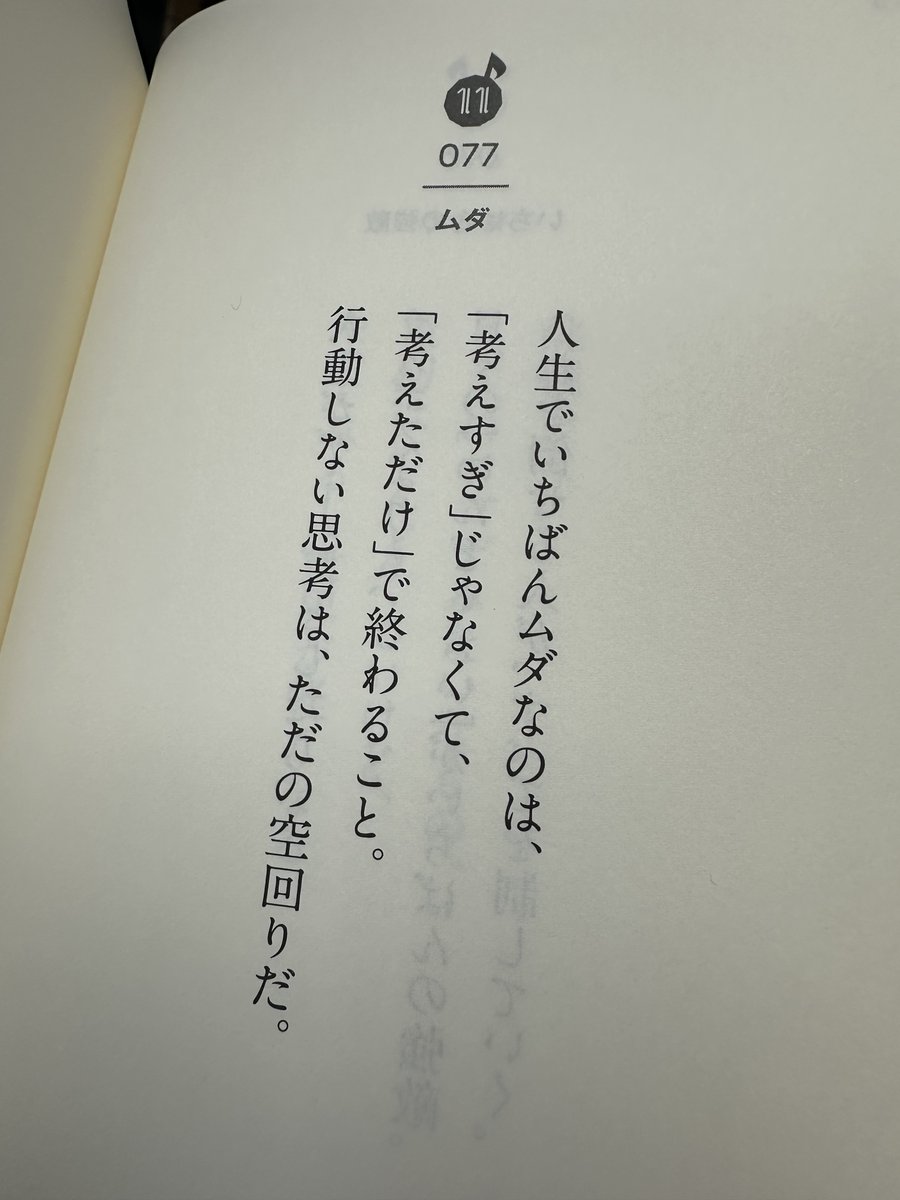 11
077
ムダ
人生でいちばんムダなのは、
「考えすぎ」じゃなくて、
「考えただけ」で終わること。
行動しない思考は、ただの空回りだ。